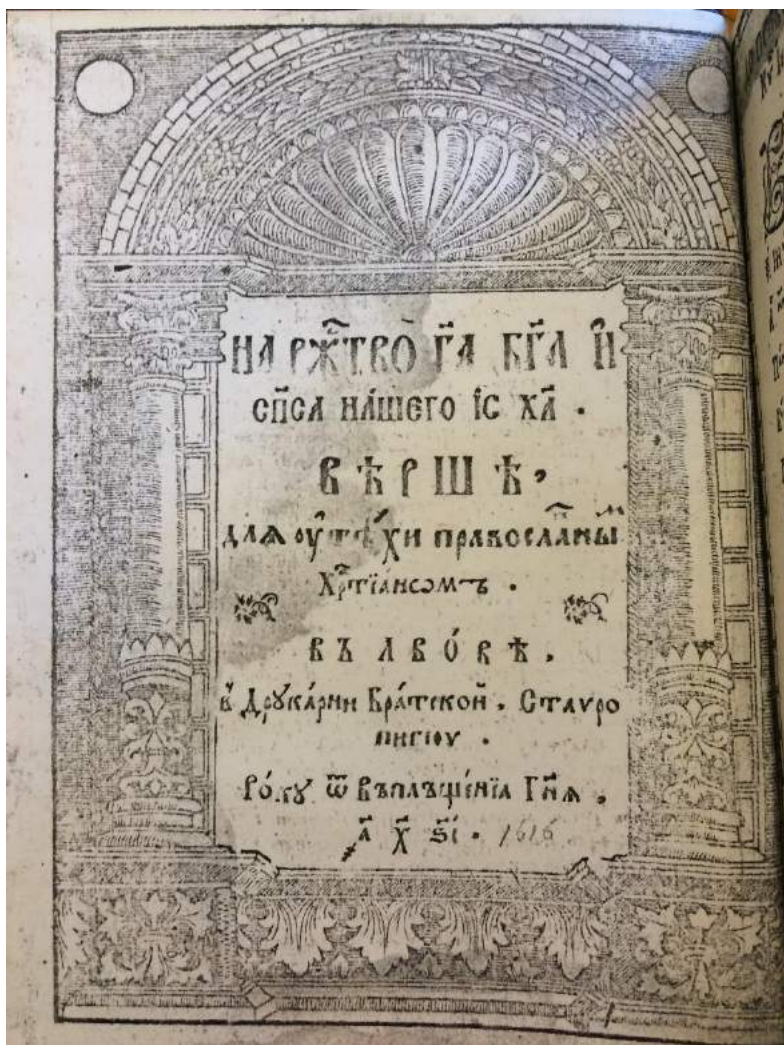 НА РЖ҃ТВО̀ Г҃А Б҃ГА И҆
СП҃СА НА́ШЕГО І҃С Х҃А .
ВѢРШѢ,
длѧ оу҆тѣ́хи правосла́внымъ
Хрⷭ҇тїанѡмъ .
ВЪ ЛВО́ВѢ ,
в Друка́рни Бра́тской . Ставро
пигїоу .
Ро́ку ѿ Въплъще́нїѧ Гн҃ѧ .
҂а҃ х҃ ѕ҃і . 1616